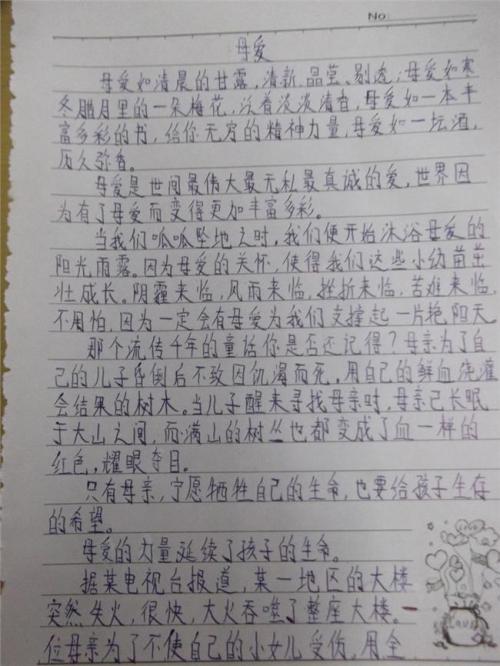 No:
母爱
母爱如清晨的甘露,清新、晶莹、剔透;母爱如寒
冬腊月里的一朵梅花,沁着淡淡清香,母爱如一本丰
富多彩的书,给你无穷的精神力量,母爱如一坛酒,
历久弥香。
母爱是世间最伟大最无私最真诚的爱,世界因
为有了母爱而变得更加丰富多彩。
当我们呱呱坠地之时,我们便开始沐浴母爱的
阳光雨露。因为母爱的关怀,使得我们这些小幼苗茁
壮成长。阴霾来临,风雨来临,挫折来临,苦难来临,
不用怕,因为一定会有母爱为我们支撑起一片艳阳天。
那个流传千年的童话你是否还记得?母亲为了自
己的儿子昏倒后不致因饥渴而死,用自己的鲜血浇灌
会结果的树木。当儿子醒来寻找母亲时,母亲已长眠
于大山之间,而满山的树丛也都变成了血一样的
红色,耀眼夺目。
只有母亲,宁愿牺牲自己的生命,也要给孩子生存
的希望。
母爱的力量延续了孩子的生命。
据某电视台报道,某一地区的大楼
突然失火,很快,大火吞噬了整座大楼。一
位母亲为了不使自己的小女儿受伤,用全
Love